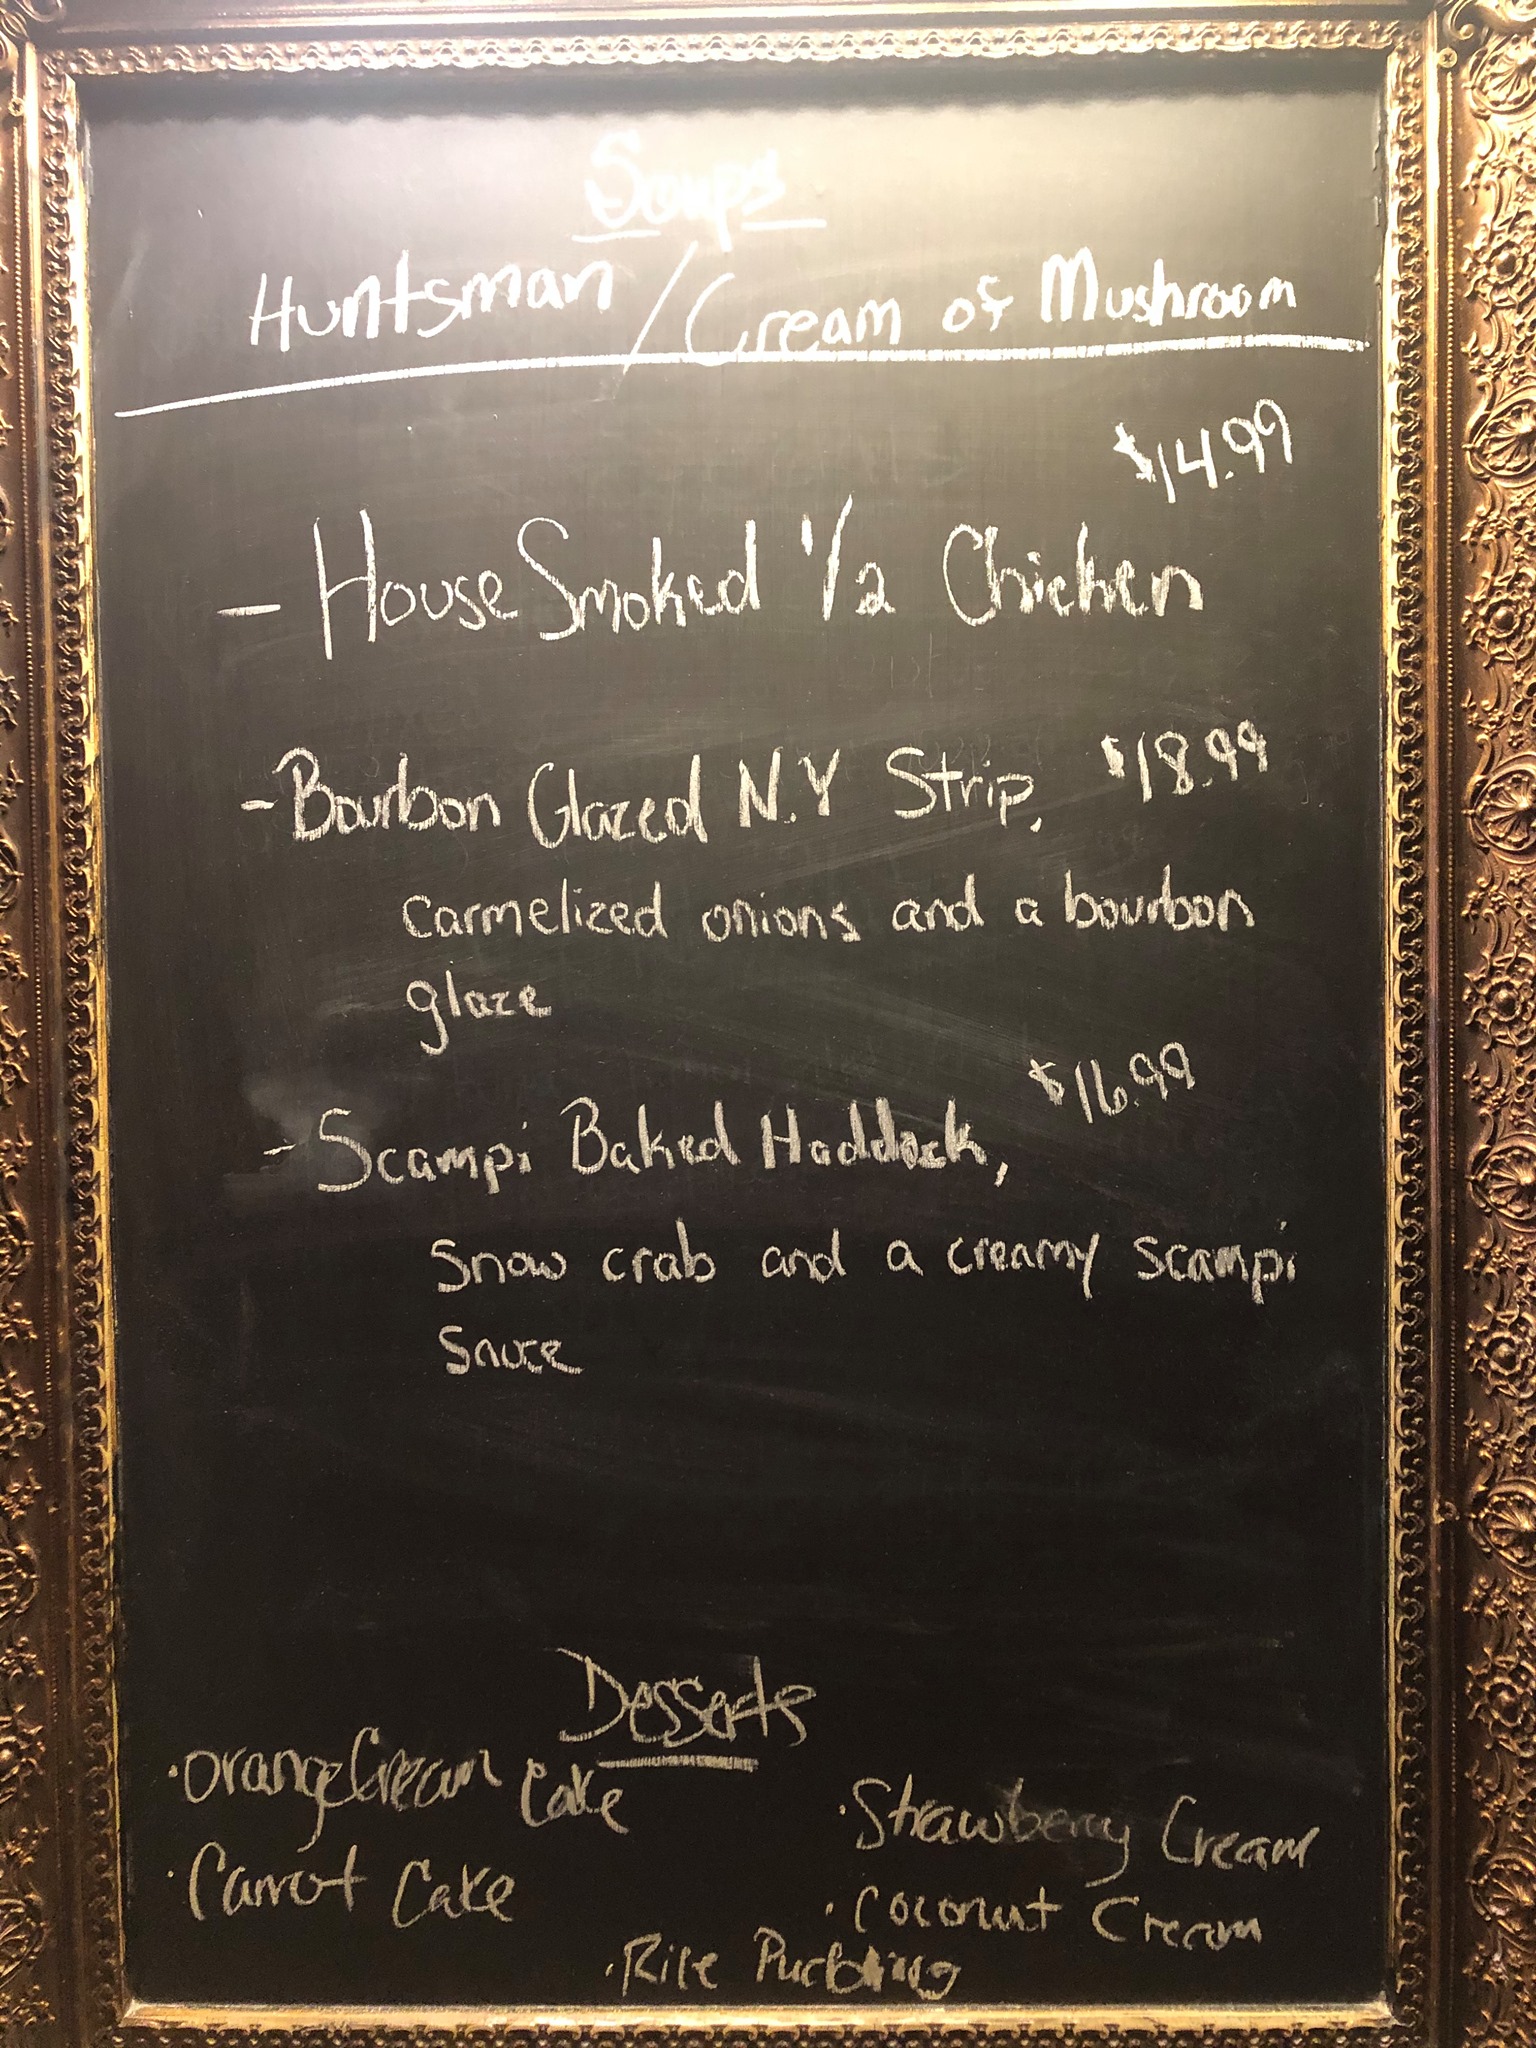 Soups
Huntsman / Cream of Mushroom
$14.99
- House Smoked 1/2 Chicken
- Bourbon Glazed N.Y Strip, $18.99
carmelized onions and a bourbon
glaze
$16.99
- Scampi Baked Haddock,
Snow crab and a creamy scampi
Sauce
Desserts
· Orange Cream Cake
· Strawberry Cream
· Carrot Cake
· Coconut Cream
· Rice Pudding